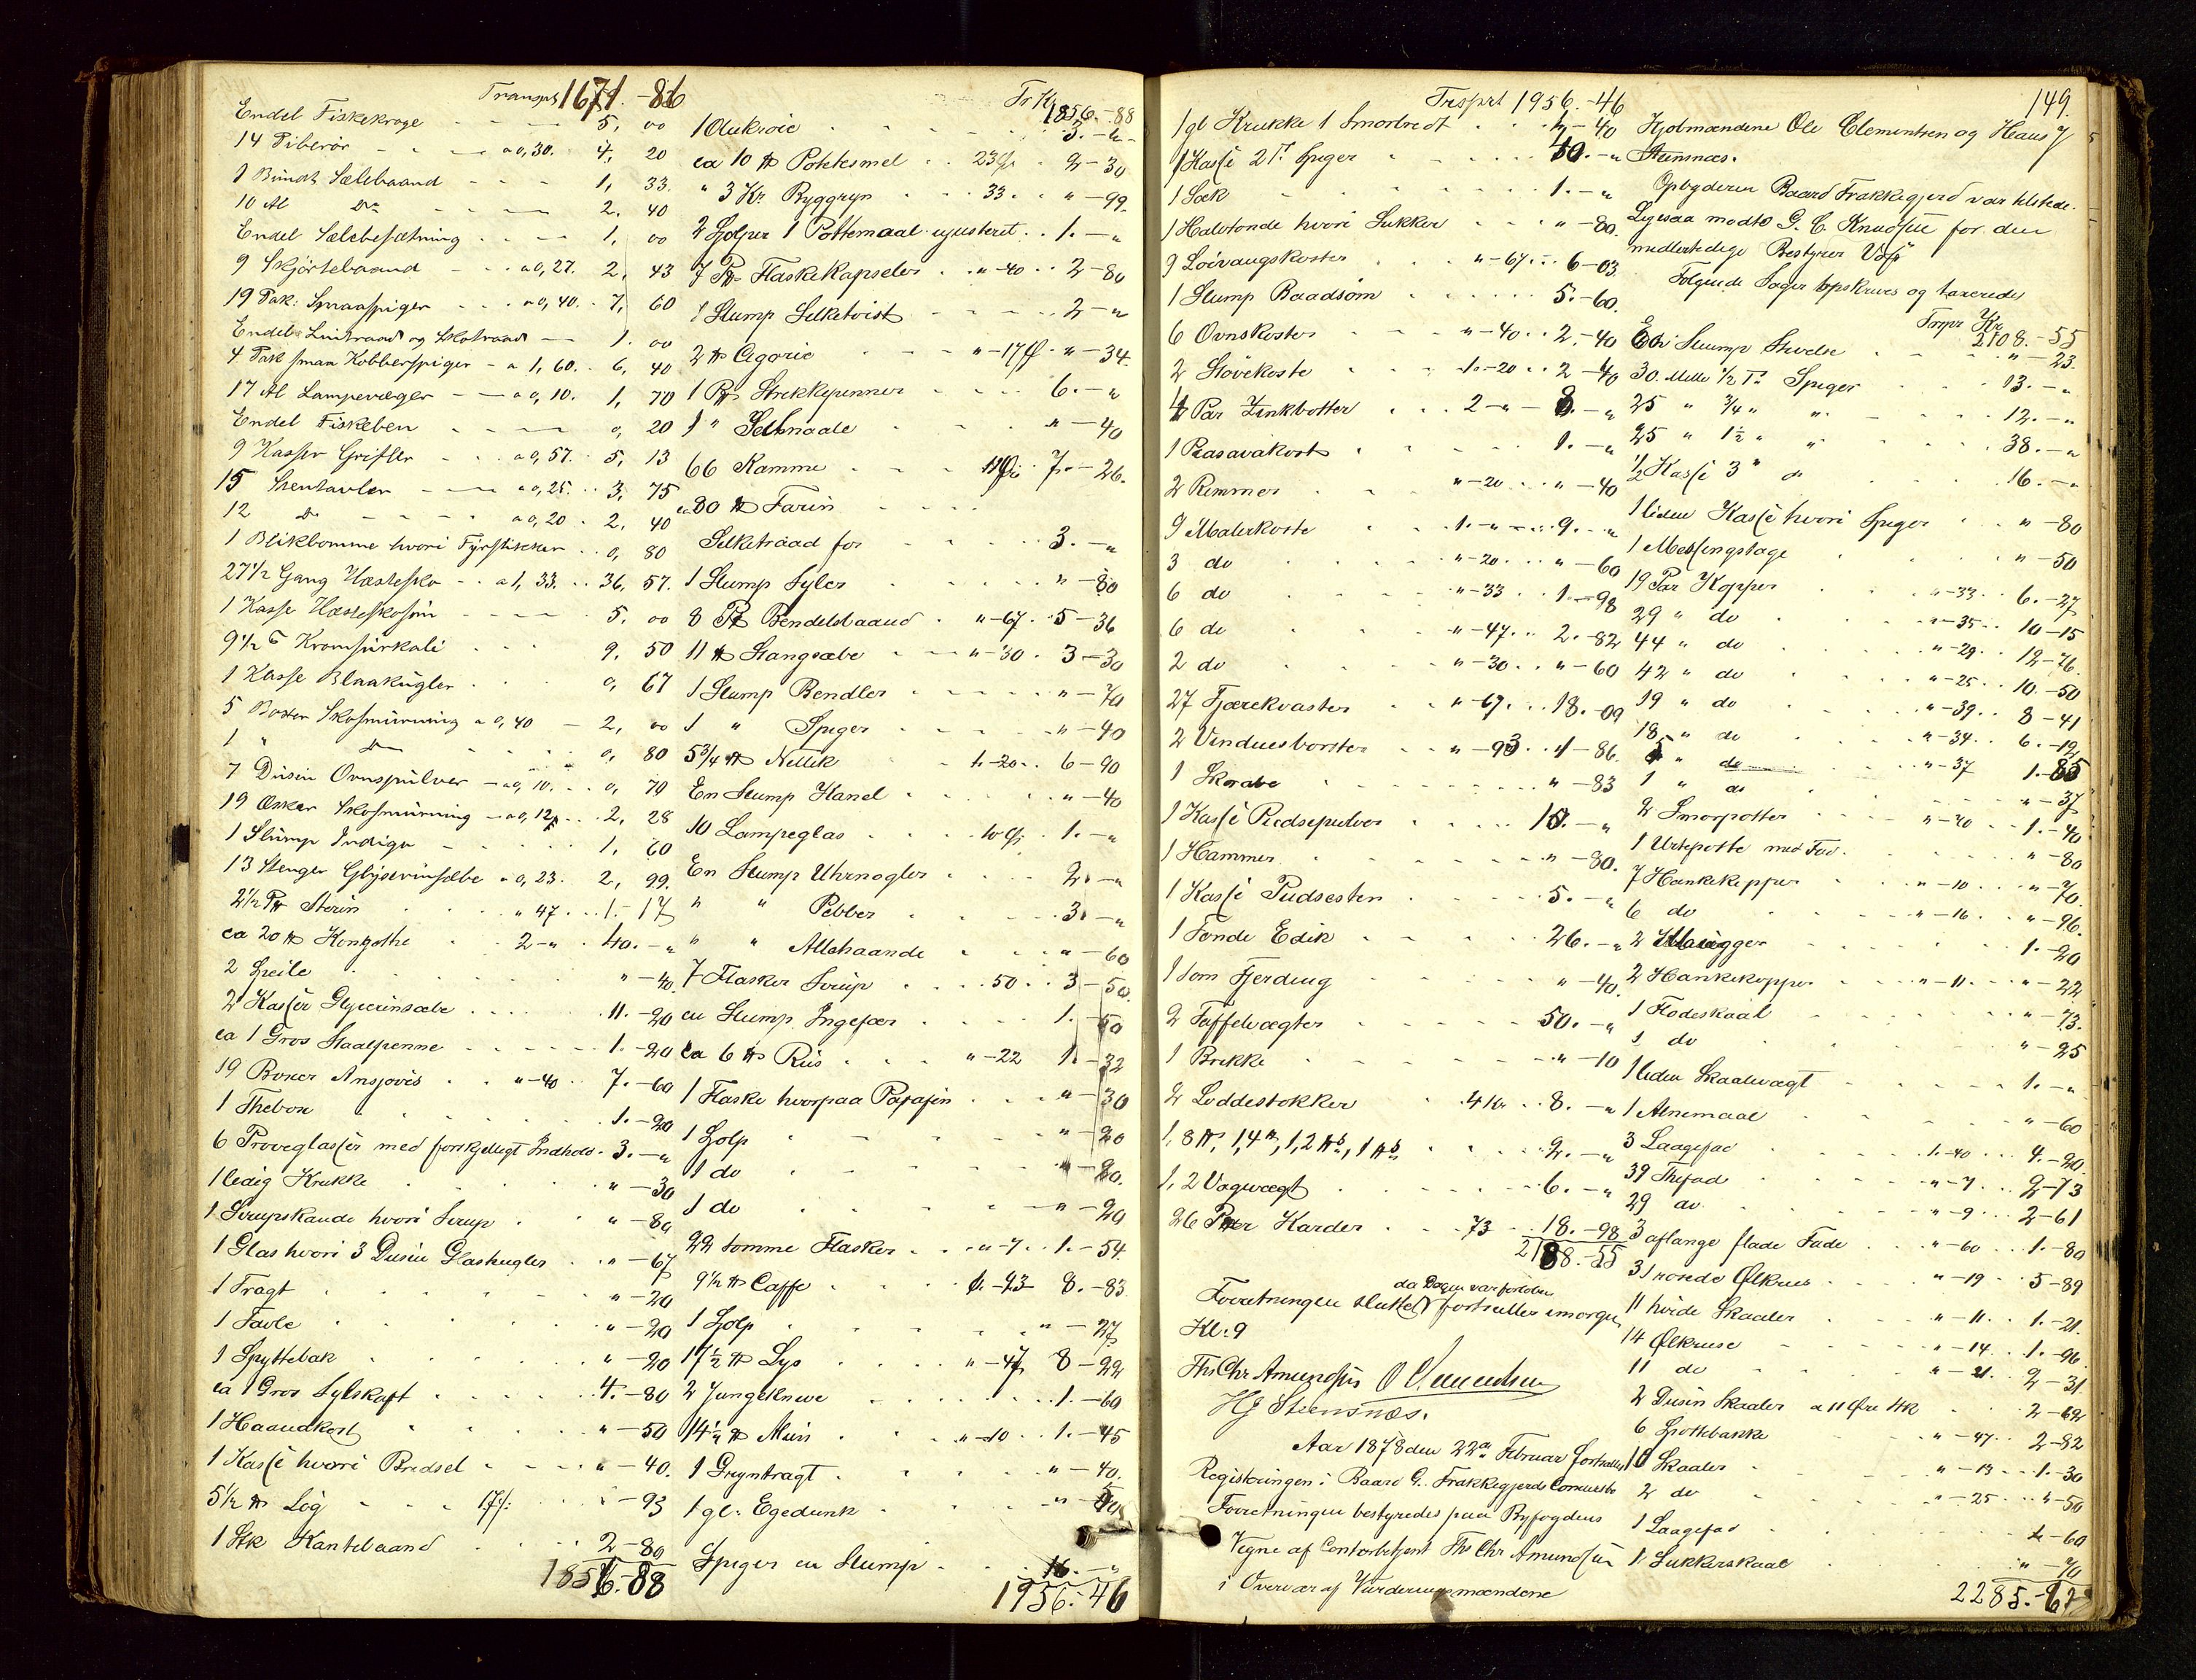 Transpt 1671.-86
Endel Fiskekroge - - - 5, 00
14 Piberör - - - a 0,30. 4, 20
1 Bundt Sælebaand - - - 1, 33.
10 Al Do - - - 2, 40
Endel Sælebesætning - - - 1, 00
9 Skjörtebaand - - - a 0,27. 2, 43
19 Pak: Smaaspiger - - - a 0,40. 7, 60
Endel Lintraad og Skotraad - 1. 00
4 Pak smaa Kobberspiger - a 1,60. 6, 40
17 Al Lampevæger - - a 0,10. 1, 70
Endel Fiskeben - - - 0, 20
9 Kasser Grifler - - a 0,57. 5, 13
15 Stentavler - - a 0,25. 3, 75
12 Do - - - a 0,20 - 2, 40
1 Blikbomme hvori Fyrstikker . . 0, 80
27 1/2 Gang Hestesko - - a 1,33. . 36, 57.
1 Kasse Hesteskosöm - - - 5. 00
9 1/2 ℔ Kromsurkali - - - 9. 50
1 Kasse Blaakugler - - 0, 67
5 Boxer Skosmurning a 0,40 - 2, 00
1 " Do - - - 0, 80
7 Dusin Ovnspulver - a 0,10. . . 0, 70
19 Æsker Skosmurning - a 0,12. . . 2, 28
1 Slump Indigo - - - 1, 60
13 Stenger Glyserinsæbe a 0,23. 2, 99.
2 1/2 ℔ Sterin . . " 47. . . 1.- 17
ca 20 ℔ Kongothe . . 2-" . 40.-"
2 Speile . . . "-40.
2 Kasser Glycerinsæbe . . . 11.-20
ca 1 Gros Staalpenne - - - 1.-20
19 Boxer Ansjovis . . "-40 . 7.-60
1 Thebox . . . 1.-20
6 Proveglasser med forskjelligt Indhold. 3.-"
1 ledig Krukke . . . "-30
1 Sirupskande hvori Sirup . . "-80
1 Glas hvori 3 Dusin Glaskugler . . "-67
1 Tragt . . . "-20
1 Tavle . . . "-20
1 Spyttebak . . . "-20
ca 1 Gros Sylskaft . . . 4.-80
1 Haandkost . . . "-50
1 Kasse hvori Bredsel . . . "-40.
5 1/2 ℔ Log - - - 17/: . . "-93
1 Stk Kantebaand . . . 2-80
1856.-88
Tr Kr 1856.-88
1 Oukseie . . . 3.-"
ca 10 ℔ Potetesmel . . 23 . 2-30
" 3 Kr. Byggryn . . . 33. . "-99.
2 Holper 1 Pottemaal ujusteret . . 1.-"
7 Pk Flaskekapseler . . "-40 . . 2-80
1 Slump Silketvist - - - 2-"
2 ℔ Cigorie . . "-17 . "-34.
1 Pk Strikkepinner - - - 6.-"
1 " Seilnaale . . . "-40
66 Kamme . . . 11 . 7.-26.
ca 80 ℔ Farin - - -
Silketraad for - - - 3.-"
1 Slump Syler . . . "-80
8 Pk Bendelsbaand . "-67. 5-36
11 ℔ Stangsæbe . . "-30 . 3-30
1 Slump Bendler . . . "-70
1 " Spiger . . . "-40
5 3/4 ℔ Nellik . . 1.-20 . . 6-90
En Slump Kanel . . . "-40
10 Lampeglas . . . 10 . 1.-"
En Slump Uhrnogler . . . 2.-"
" " Pebber . . . 3.-"
" " Allehaande . . . "-60
7 Flasker Sirup . . . 50 . . 3-50.
en Slump Ingefær . . . 1.-50
ca 6 ℔ Riis . . . "-22 1.-32
1 Flaske hvorpaa Papajin . . . "-30
1 Holp . . . "-20
1 do . . . "-20.
1 do . . . "-20
22 tomme Flasker . . "-7 . . 1.-54.
9 1/2 ℔ Caffe . . . "-93 8.-83
1 Holp . . . "-27
17 1/2 ℔ Lys . . . "-47 8-22
2 Jungeknive . . . 1.-60
14 1/2 ℔ Mais . . "-10 . . 1.-45
1 Gryntragt . . . "-40.
1 gl. Egedunk . . . "-50
Spiger en Slump . . . 16.-"
1956.-46
Trsprt 1956.-46
1 gl Krukke 1 Smorbredt . . . "-40
1 Kasse 2 T. Spiger . . . 40.-"
1 Sæk . . . 1.-"
1 Halvtonde hvori Sukker . . . "-80.
9 Loivaugskoster . . . "-67. . . 6-03
1 Slump Baadsöm . . . 5.-60.
6 Ovnskoster . . "-40 . . 2.-40
2 Stövekoste . . . 1.-20 . . 2-40
4 Par Zinkbotter . . . 2-" - 8.-"
1 Peasavakost . . . 1.-"
2 Rimmer . . . "-20 . . "-40
9 Malerkoste . . 1.-" - . 9.-"
3 do . . . "-20. . . "-60
6 do . . . "-33 . . 1.-98
6 do . . . "-47. . . 2.-82
2 do . . . "-30 . . "-60
27 Fjærekvaster . . "-67. . . 18.-09
2 Vinduesborster . . "-93 . . 1-86.
1 Skrabe . . . "-83
1 Kasse Pudsepulver . . . 10.-"
1 Hammer . . . "-80.
1 Kasse Pudsesten . . . 5.-"
1 Tonde Edik . . . 26.-"
1 tom Fjerding . . . "-40.
2 Taffelvægter . . . 50.-"
1 Brikke . . . "-10
2 Loddestokker . 4 Kr . . 8.-"
1, 8 ℔, 1, 4 ℔, 1, 2 ℔, 1 ℔ . . . 2.-"
1, 2 Vogvægt . . . 6.-"
26 Par Karder . . . 73 . . 18.-98
2108.-55
da Dagen var forloben
Forretningen sluttet fortsættes imorgen
Kl. 9
Ths Chr Amundsen O Clementsen
HJ Steensnæs.
Aar 1878 den 22de Februar fortsattes
Registeringen i Baard G. Frakkegjerds Concursbo
Forretningen bestyredes paa Byfogdens
Vegne af Contorbetjent Ths Chr Amundsen
i Overvær af Vurderingsmændene
149.
Hjolmændene Ole Clementsen og Hans J
Steensnæs.
Opbyderen Baard Frakkegjerd var tilstede.
Ligesaa modte G. C. Knudsen for den
midlertidige Bestyrer Voss
Folgende Sager opskreves og taxeredes
Trspr Kr 2108.-55
En Slump Stivelse . . . "-23.
30 Mille 1/2 T. Spiger . . . 13.-"
25 " 3/4 " " . . . 12.-"
25 " 1 1/2 " " . . . 38.-"
1/2 Kasse 3 " " . . . 16.-"
1 liden Kasse hvori Spiger . . "-80
1 Messingstage . . . "-50
19 Par Kopper . . "-33 . . 6.-27
29 " do . . . "-35 . . 10-15
44 " do . . . "-29 . . 12-76.
42 " do . . . "-25 . . 10.-50
19 " do . . . "-39 . . 8-41
18 " do . . . "-34. . . 6.-12
5 " do . . . "-37 1.-85
1 " do . . . "-37
2 Smorpotter . . . "-20 . . 1.-40
1 Urtepotte med Fad . . . "-80
7 Hankekopper . . "-10 . . . "-70.
6 do . . . "-16 . . "-96.
2 Mugger . . . 1.-20
2 Hankekopper . . "-11. . . "-22
1 Flodeskaal . . . "-73.
1 do . . . "-25
1 liden Skaalvægt . . . 1.-"
1 Alnemaal . . . "-60
3 Laagefad . . . 1.-40 . . . 4.-20.
39 Thefad . . . "-7 . . . 2-73
29 do . . . "-9 . . . 2-61
3 aflange flade Fade . . . "-60 . . . 1.-80
31 rosede Ølkrus . . . "-19 . . 5-89
11 hvide Skaaler . . . "-11. . . 1.-21.
14 Ølkruse . . . "-14 . . 1.-96
11 do . . . "-21. . 2-31
2 Dusin Skaaler a 11 Øre Stk . . 2-62
6 Spottebakke . . . "-47. . 2-82
10 Skaaler . . . "-13 . . 1.-30
2 do . . . "-25 . . . "-50
1 Laagefad . . . "-60
1 Sukkerskaal . . . "-70
2285.-62